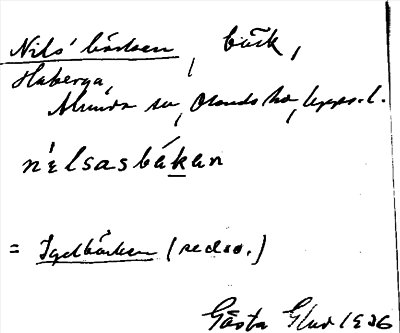 Nils' bäcken, bäck,
Haberga,
Almunda sn, Olands hd, Upps. l.
nélsasbäkan
= Igelbäcken (redso.)
Gösta Glad 1936